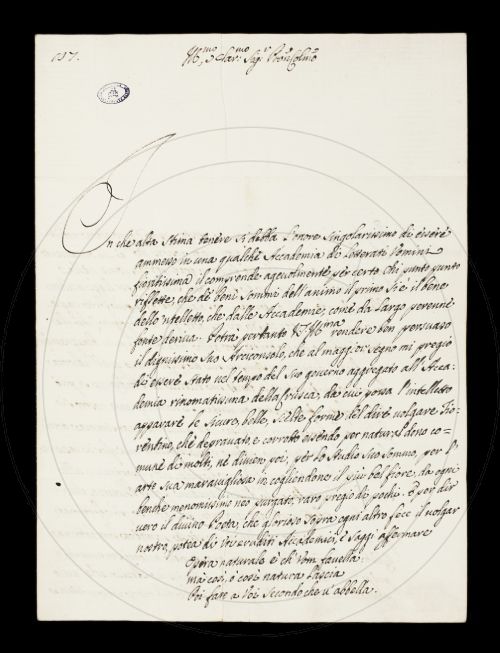 117.
Ill.mo, e Clar.mo Sig.r Pron Colmo
In che alta stima tenere si debba l'onore singolarissimo di essere
ammesso in una qualche Accademia di Letterati Uomini
fioritissima il comprende agevolmente per certo chi punto punto
riflette, che de' beni sommi dell'animo il primo si è il bene
dello 'ntelletto, che dalle Accademie, come da largo perenne
fonte deriva. Potrà pertanto V.S. Ill.ma rendere ben persuaso
il dignissimo suo Arciconsolo, che al maggior segno mi pregio
di essere stato nel tempo del suo governo aggregato all'Acca-
demia rinomatissima della Crusca, da cui possa l'intelletto
apparare le sicure, belle, scelte forme del dire volgare Fio-
rentino, che depravato, e corrotto essendo per natural dono co=
mune di molti, ne divien poi, per lo studio suo sommo, per l'
arte sua maravigliosa in cogliendone il più bel fiore, da ogni
benche menomissimo neo purgato, raro pregio di pochi. E per dir
vero il divino Poeta, che glorioso sopra ogni altro fece il volgar
nostro, potea di Voi eruditi Accademici, e saggi affermare
Opera naturale è ch'Uom favella:
ma così, o così natura lascia
Poi fare a Voi secondo che v'abbella.